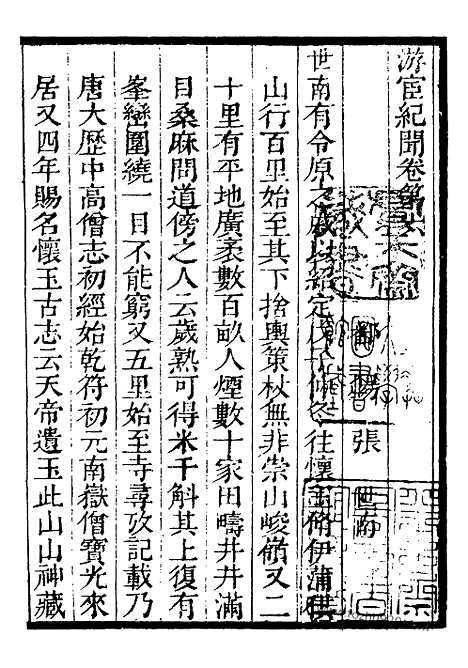 游宦紀聞卷第六
鄱陽 張 世南
世南有令原之戚以紹定戊子仲冬往懷玉脩伊蒲供
山行百里始至其下捨輿策杖無非崇山峻嶺又二
十里有平地廣袤數百畝人煙數十家田疇井井滿
目桑麻問道傍之人云歲熟可得米千斛其上復有
峯巒圍繞一目不能窮又五里始至寺尋攷記載乃
唐大歷中高僧志初經始乾符初元南嶽僧寶光來
居又四年賜名懷玉古志云天帝遺玉此山山神藏